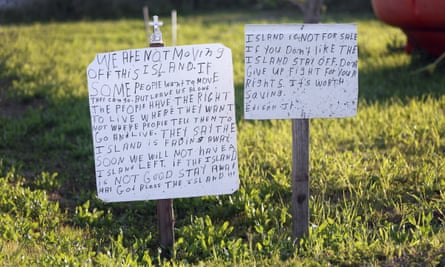 WE ARE NOT MOVING
OFF THIS ISLAND. IF
SOME PEOPLE WANT TO MOVE
THEY CAN GO. BUT LEAVE US ALONE
THE PEOPLE HAVE THE RIGHT
TO LIVE WHERE THEY WANT
NOT WHERE PEOPLE TELL THEM TO
GO AND LIVE. THEY SAY THE
ISLAND IS FADING AWAY
SOON WE WILL NOT HAVE A
ISLAND LEFT. IF THE ISLAND
IS NOT GOOD STAY AWAY
MAY GOD BLESS THE ISLAND !!!
ISLAND IS NOT FOR SALE
IF YOU DON'T LIKE THE
ISLAND STAY OFF. DON'T
GIVE UP FIGHT FOR YOUR
RIGHTS. IT'S WORTH
SAVING.
EDISON JR.